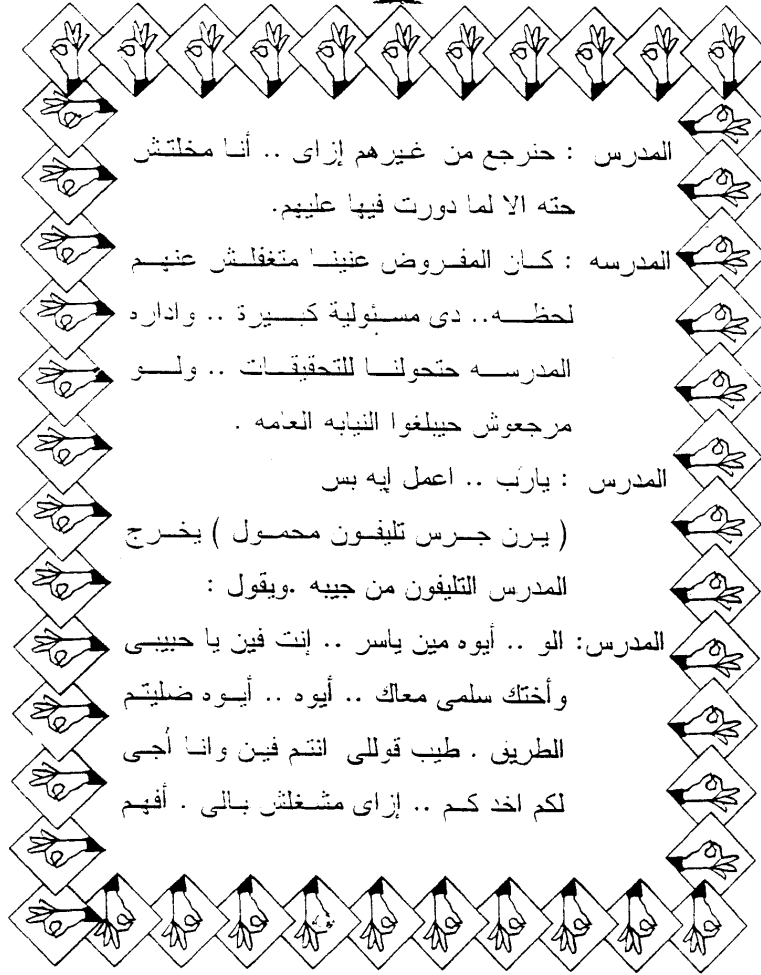 المدرس : حنرجع من غيرهم إزاى .. أنا مخلتش
حته الا لما دورت فيها عليهم.
المدرسه : كان المفروض عنينا متغفلش عنهم
لحظه.. دى مسئولية كبيرة .. واداره
المدرسه حتحولنا للتحقيقات .. ولو
مرجعوش حيبلغوا النيابه العامه .
المدرس : يارب .. اعمل إيه بس
( يرن جرس تليفون محمول ) يخرج
المدرس التليفون من جيبه .ويقول :
المدرس: الو .. أيوه مين ياسر .. إنت فين يا حبيبى
وأختك سلمى معاك .. أيوه .. أيوه ضليتم
الطريق . طيب قوللى انتم فين وانا أجى
لكم اخد كم .. إزاى مشغلش بالى . أفهم